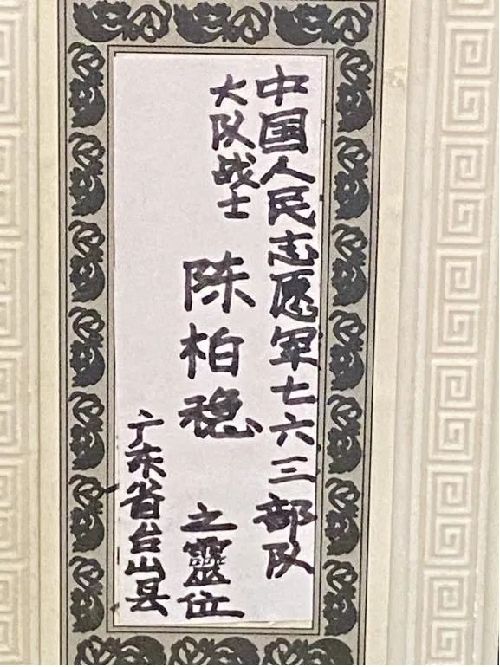 中国人民志愿军七六三部队
大队战士 陈柏稳 之靈位
广东省台山县